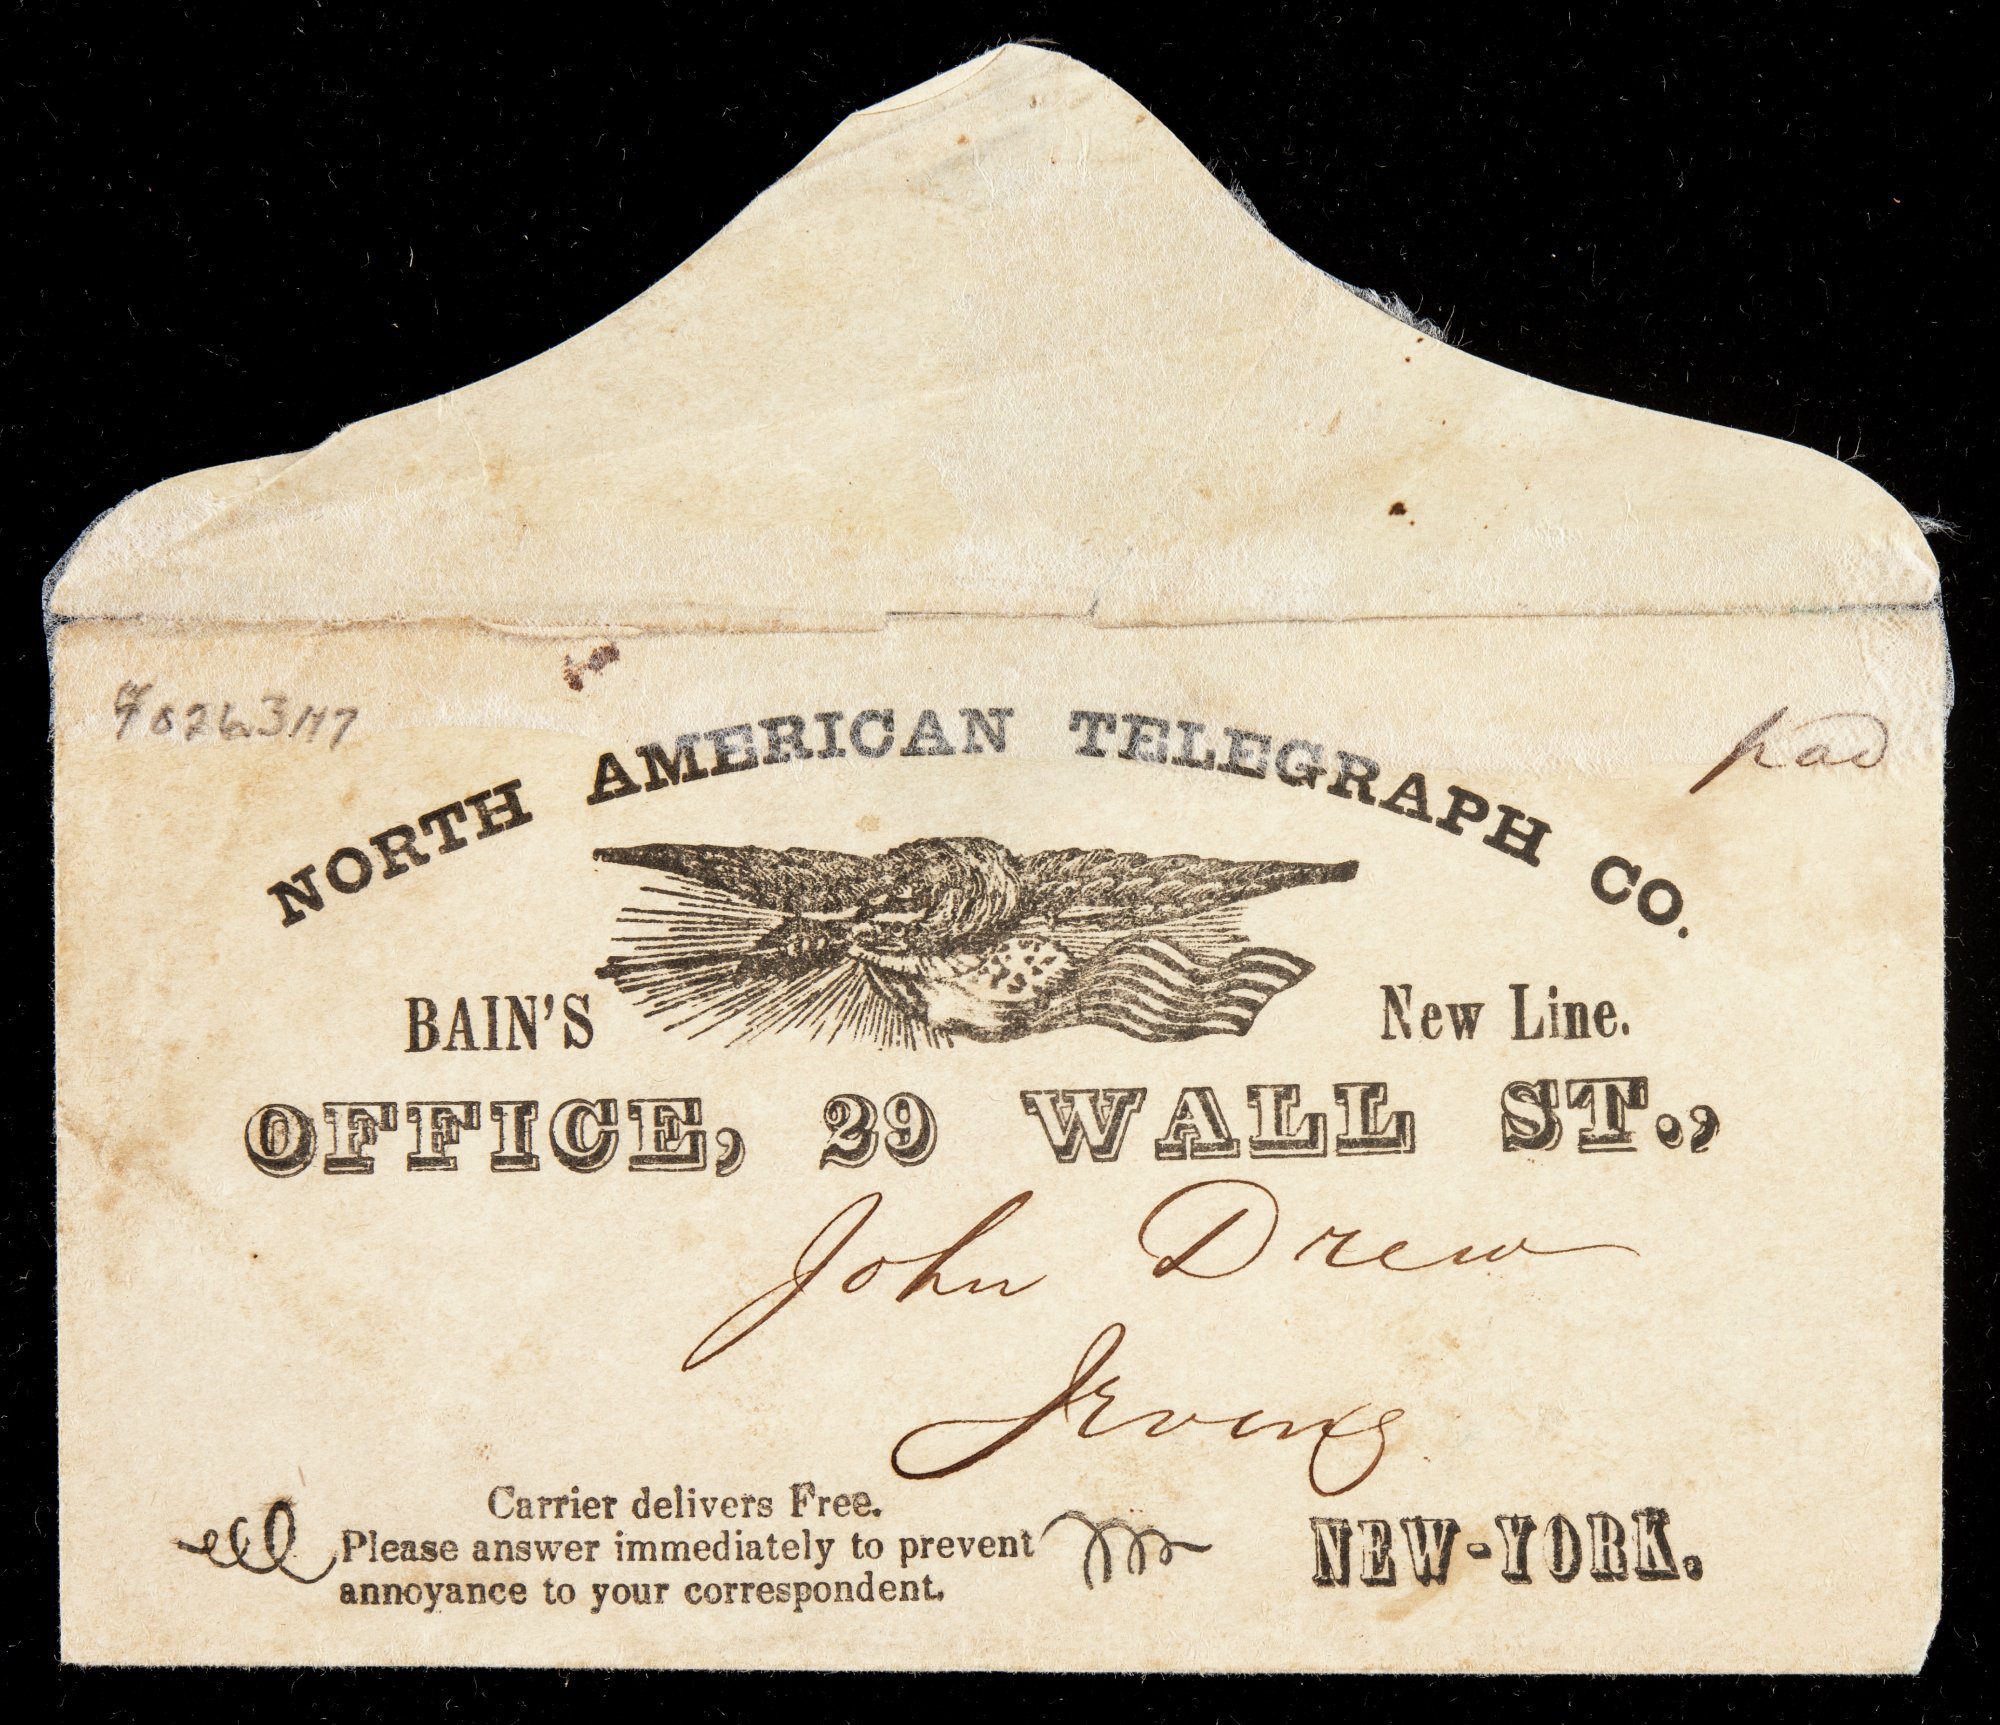 4026.3147
pad
NORTH AMERICAN TELEGRAPH CO.
BAIN'S New Line.
OFFICE, 29 WALL ST.,
John Drew
Irving
Carrier delivers Free.
Please answer immediately to prevent
annoyance to your correspondent.
NEW-YORK.